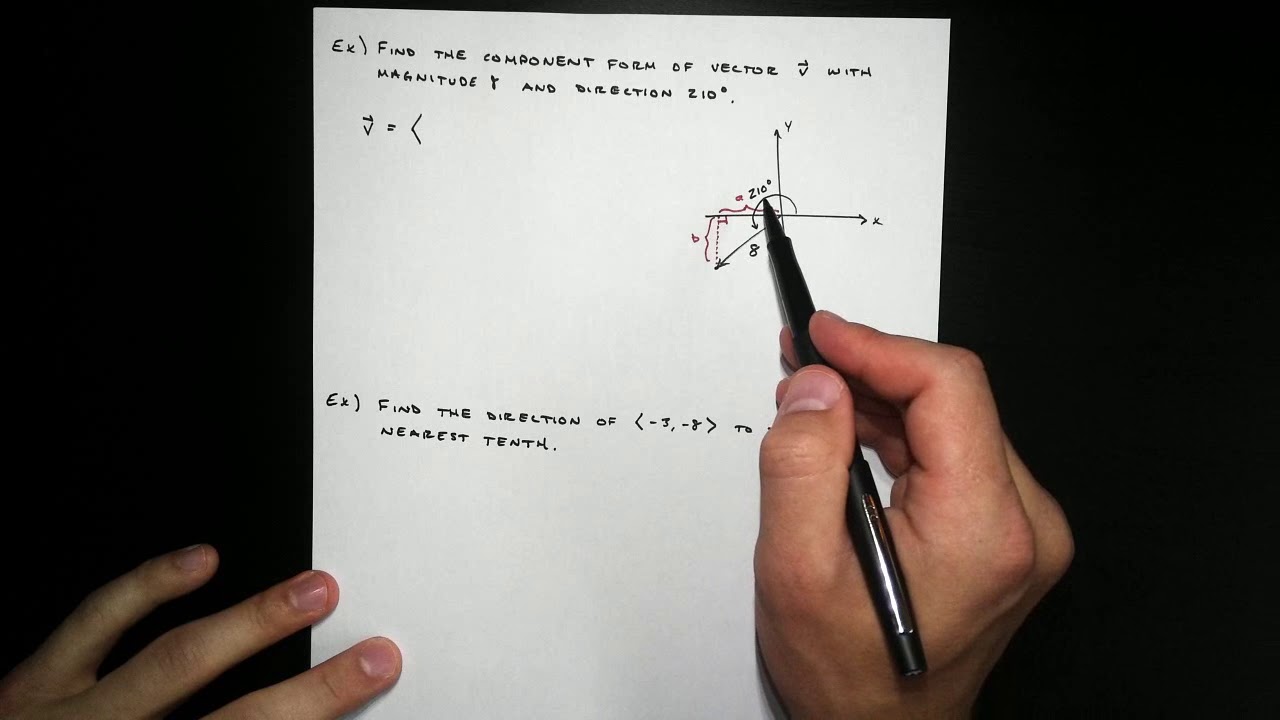 Ex) FIND THE COMPONENT FORM OF VECTOR v⃗ WITH
MAGNITUDE 8 AND DIRECTION 210°.
v⃗ = ⟨
y
210°
a
x
b
8
Ex) FIND THE DIRECTION OF ⟨-3, -8⟩ TO
NEAREST TENTH.